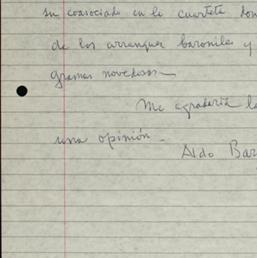 su coasociado en le cuarteto
de los arranques baroniles y
gramas novedosos
Me agradaría
una opinión.
Aldo Bar